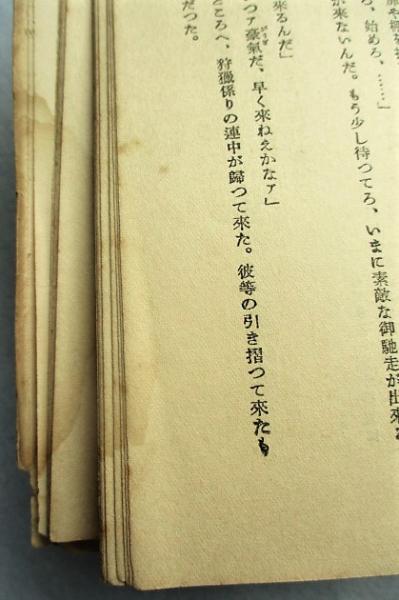 ろ、始めろ、……」
が來ないんだ。もう少し待つてろ、いまに素敵な御馳走が出來
來るんだ」
つァ豪氣だ、早く來ねえかなァ」
ところへ、狩獵係りの連中が歸つて來た。彼等の引き摺つて來たも
だつた。